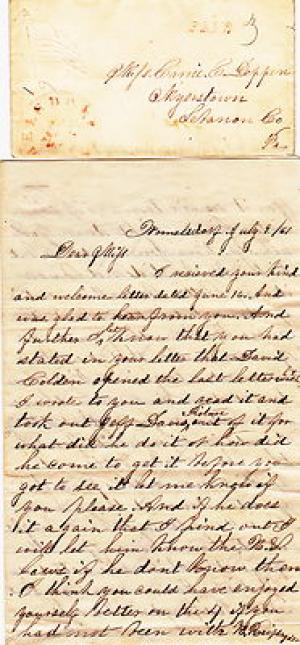 PAID 3
Miss Carrie C. Deppen
Myerstown
Lebanon Co
Pa.
Womelsdorf July 8/61
Dear Miss
I recieved your kind
and welcome letter dated June 16. And
was glad to hear from you. And
further I let know that you had
stated in your letter that David
Colden opened the last letter which
I wrote to you and read it and
took out Jeff Davis, Picture out of it for
what did he do it or how did
he come to get it before you
got to see it let me know if
you please. And if he does
it again that I find out I
will let him know the U.S
Laws if he dont know them
I think you could have enjoyed
yourself better on the 4 if you
had not been with